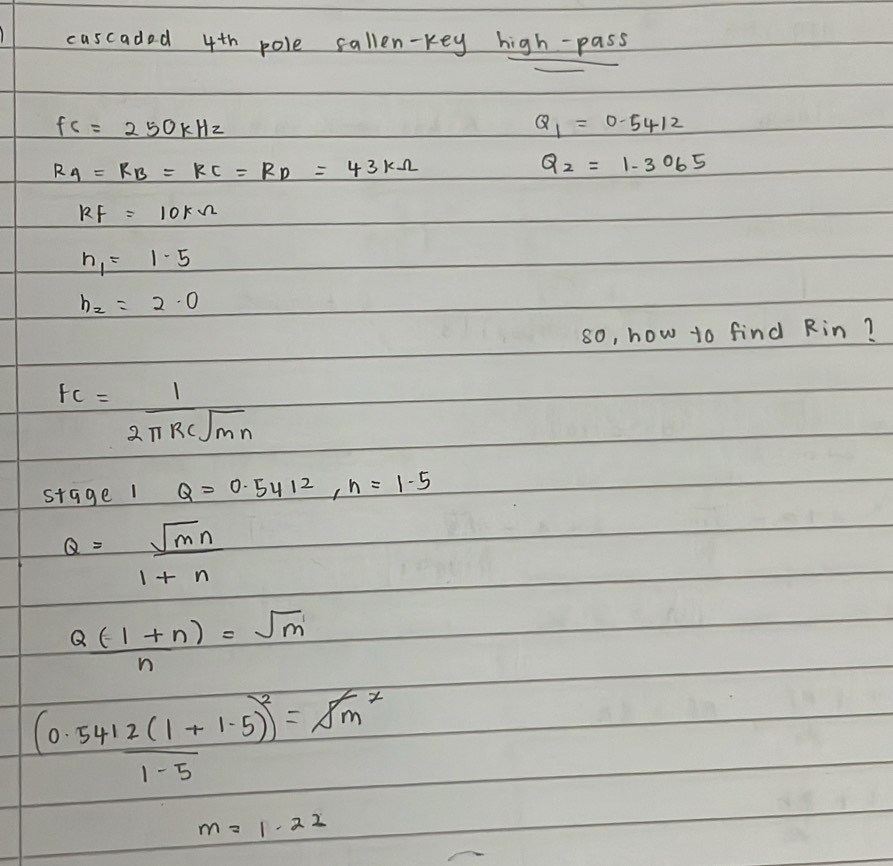 )
cascaded 4th pole sallen-key high-pass
fc = 250kHz
Q1 = 0.5412
RA = RB = RC = RD = 43kΩ
Q2 = 1.3065
RF = 10kΩ
n1 = 1.5
n2 = 2.0
so, how to find Rin?
fc = 1
2πRC√mn
stage 1 Q = 0.5412, n = 1.5
Q = √mn
1 + n
Q(-1 + n) = √m
n
(0.5412(1 + 1.5))² = √m²
1-5
m = 1.22